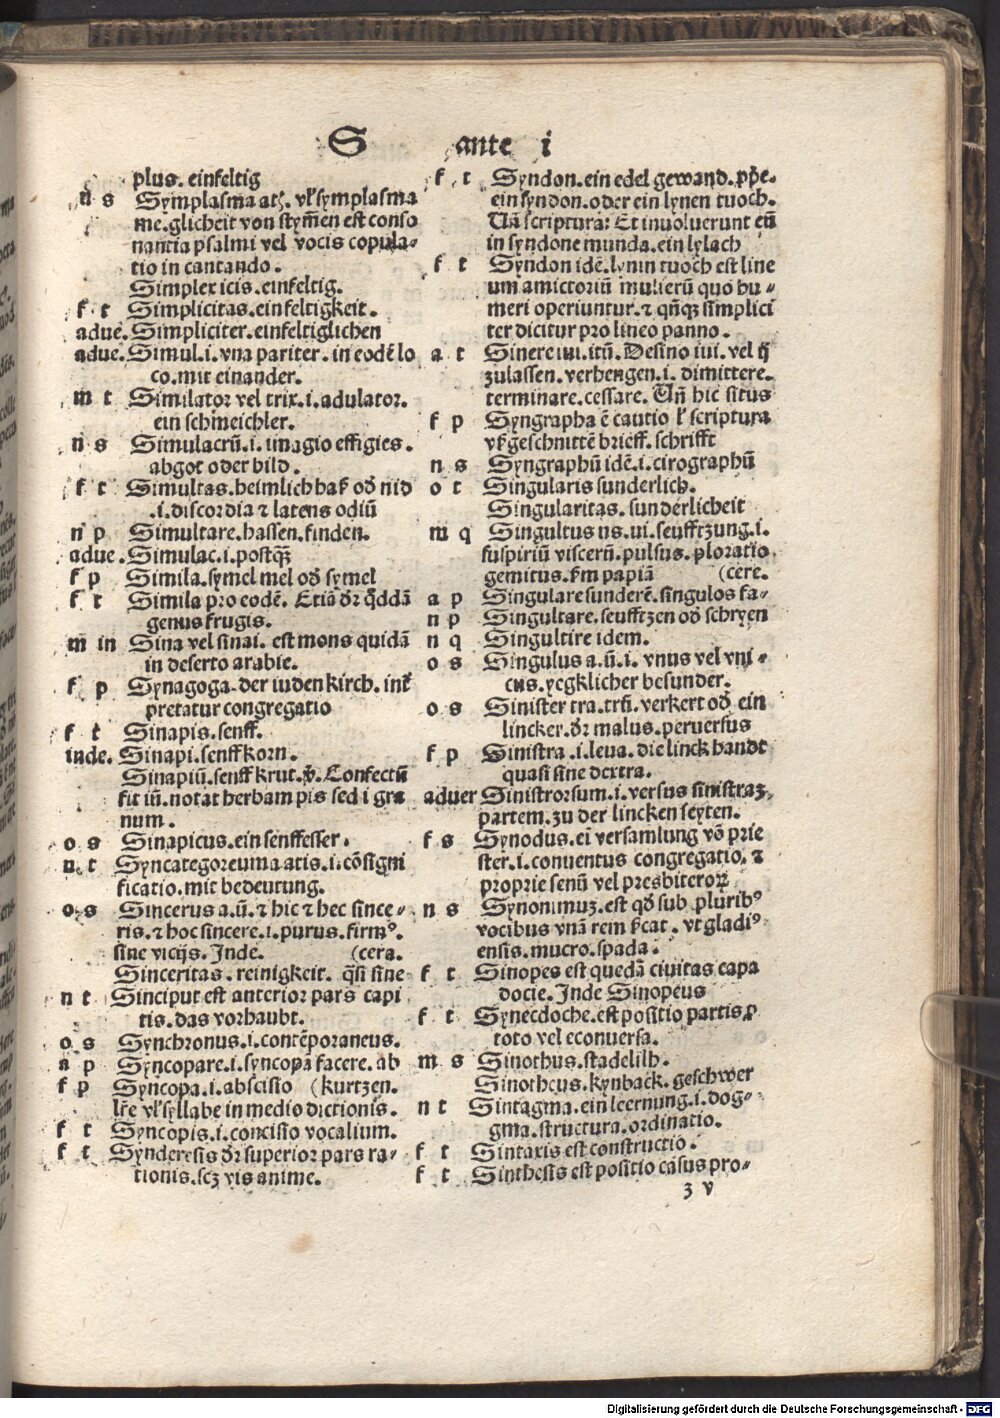 S ante i
plus. einfeltig
n s Symplasma atꝭ. vl' symplasma
me. glicheit von stym̄en est conso
nantia psalmi vel vocis copula⸗
tio in cantando.
Simplex icis. einfeltig.
f t Simplicitas. einfeltigkeit.
adue. Simpliciter. einfeltiglichen
adue. Simul. i. vna pariter. in eodē lo
co. mit einander.
m t Similator vel trix. i. adulator.
ein schmeichler.
n s Simulacrū. i. imagio effigies.
abgot oder bild.
f t Simultas. heimlich haß od̄ nid
.i. discordia ⁊ latens odiū
n p Simultare. hassen. finden.
adue. Simulac. i. postꝗ̄
f p Simila. symel mel od̄ symel
f t Simila pro eodē. Etiā dr̄ qddā
genus frugis.
m in Sina vel sinai. est mons quidā
in deserto arabie.
f p Synagoga. der iuden kirch. int̄
pretatur congregatio
f t Sinapis. senff.
inde. Sinapi. senffkorn.
Sinapiū. senffkrut. Confectū
fit iū. notat herbam pis sed i gra
num.
o s Sinapicus. ein senffesser.
n t Syncategoreuma atis. i. cōsigni
ficatio. mit bedeutung.
o s Sincerus a. ū. ⁊ hic ⁊ hec since⸗
ris. ⁊ hoc sincere. i. purus. firmꝰ.
sine vicijs. Inde. (cera.
Sinceritas. reinigkeit. q̄si sine
n t Sinciput est anterior pars capi
tis. das vorhaubt.
o s Synchronus. i. contēporaneus.
a p Syncopare. i. syncopā facere. ab
f p Syncopa. i. abscisio (kurtzen.
lr̄e vl' syllabe in medio dictionis.
f t Syncopis. i. concisio vocalium.
f t Synderesis dr̄ superior pars ra⸗
tionis. scꝫ vis anime.
f t Syndon. ein edel gewand. ꝓp̄e.
ein syndon. oder ein lynen tuoch.
Uñ scriptura: Et inuoluerunt eū
in syndone munda. ein lylach
f t Syndon idē. lynin tuoch est line
um amictoriū mulierū quo hu⸗
meri operiuntur. ⁊ qn̄qꝫ simplici
ter dicitur pro lineo panno.
a t Sinere iui. itū. Desino iui. vel ij
zulassen. verhengen. i. dimittere.
terminare. cessare. Uñ hic situs
f p Syngrapha ē cautio l' scriptura
vßgeschnittē brieff. schrifft
n s Syngraphū idē. i. cirographū
o t Singularis sunderlich.
Singularitas. sunderlicheit
m q Singultus us. ui. seufftzung. i.
suspiriū viscerū. pulsus. ploratio
gemitus. fm papiā (cere.
a p Singulare sunderē. singulos fa⸗
n p Singultare. seufftzen od̄ schryen
n q Singultire idem.
o s Singulus a. ū. i. vnus vel vni⸗
cus. yegklicher besunder.
o s Sinister tra. trū. verkert od̄ ein
lincker. dr̄ malus. peruersus
f p Sinistra .i. leua. die linck handt
quasi sine dextra.
aduer Sinistrorsum. i. versus sinistraꝫ
partem. zu der lincken seyten.
f s Synodus. ei versamlung vō prie
ster. i. conuentus congregatio. ⁊
proprie senū vel presbiteroꝝ
n s Synonimuꝫ. est qd̄ sub pluribꝰ
vocibus vnā rem s̄cat. vt gladiꝰ
ensis. mucro. spada.
f t Sinopes est quedā ciuitas capa
docie. Inde Sinopeus
f t Synecdoche. est positio partis ꝓ
toto vel econuersa.
m s Sinothus. stadelilh.
Sinotheus. kynback. geschwer
n t Sintagma. ein leernung. i. dog⸗
gma. structura. ordinatio.
f t Sintaxis est constructio.
f t Sinthesis est positio casus pro⸗
z v
Digitalisierung gefördert durch die Deutsche Forschungsgemeinschaft - DFG